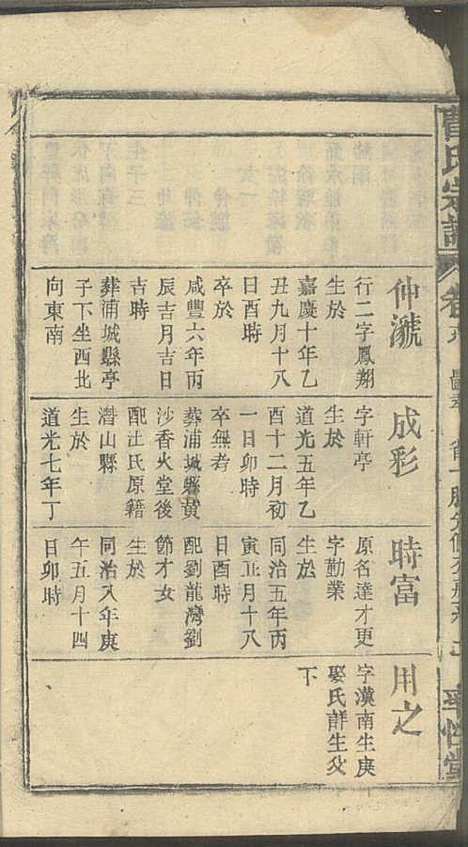 曹氏宗譜
卷
仲漋
行二字鳳翔
生於
嘉慶十年乙
丑九月十八
日酉時
卒於
咸豐六年丙
辰吉月吉日
吉時
葬浦城縣亭
子下坐西北
向東南
成彩
字軒亭
生於
道光五年乙
酉十二月初
一日卯時
卒無考
葬浦城縣黄
沙香火堂後
配汪氏原籍
潛山縣
生於
道光七年丁
時富
原名達才更
字勤業
生於
同治五年丙
寅正月十八
日酉時
配劉龍灣劉
節才女
生於
同治八年庚
午五月十四
日卯時
用之
字漢南生庚
娶氏詳生父
下